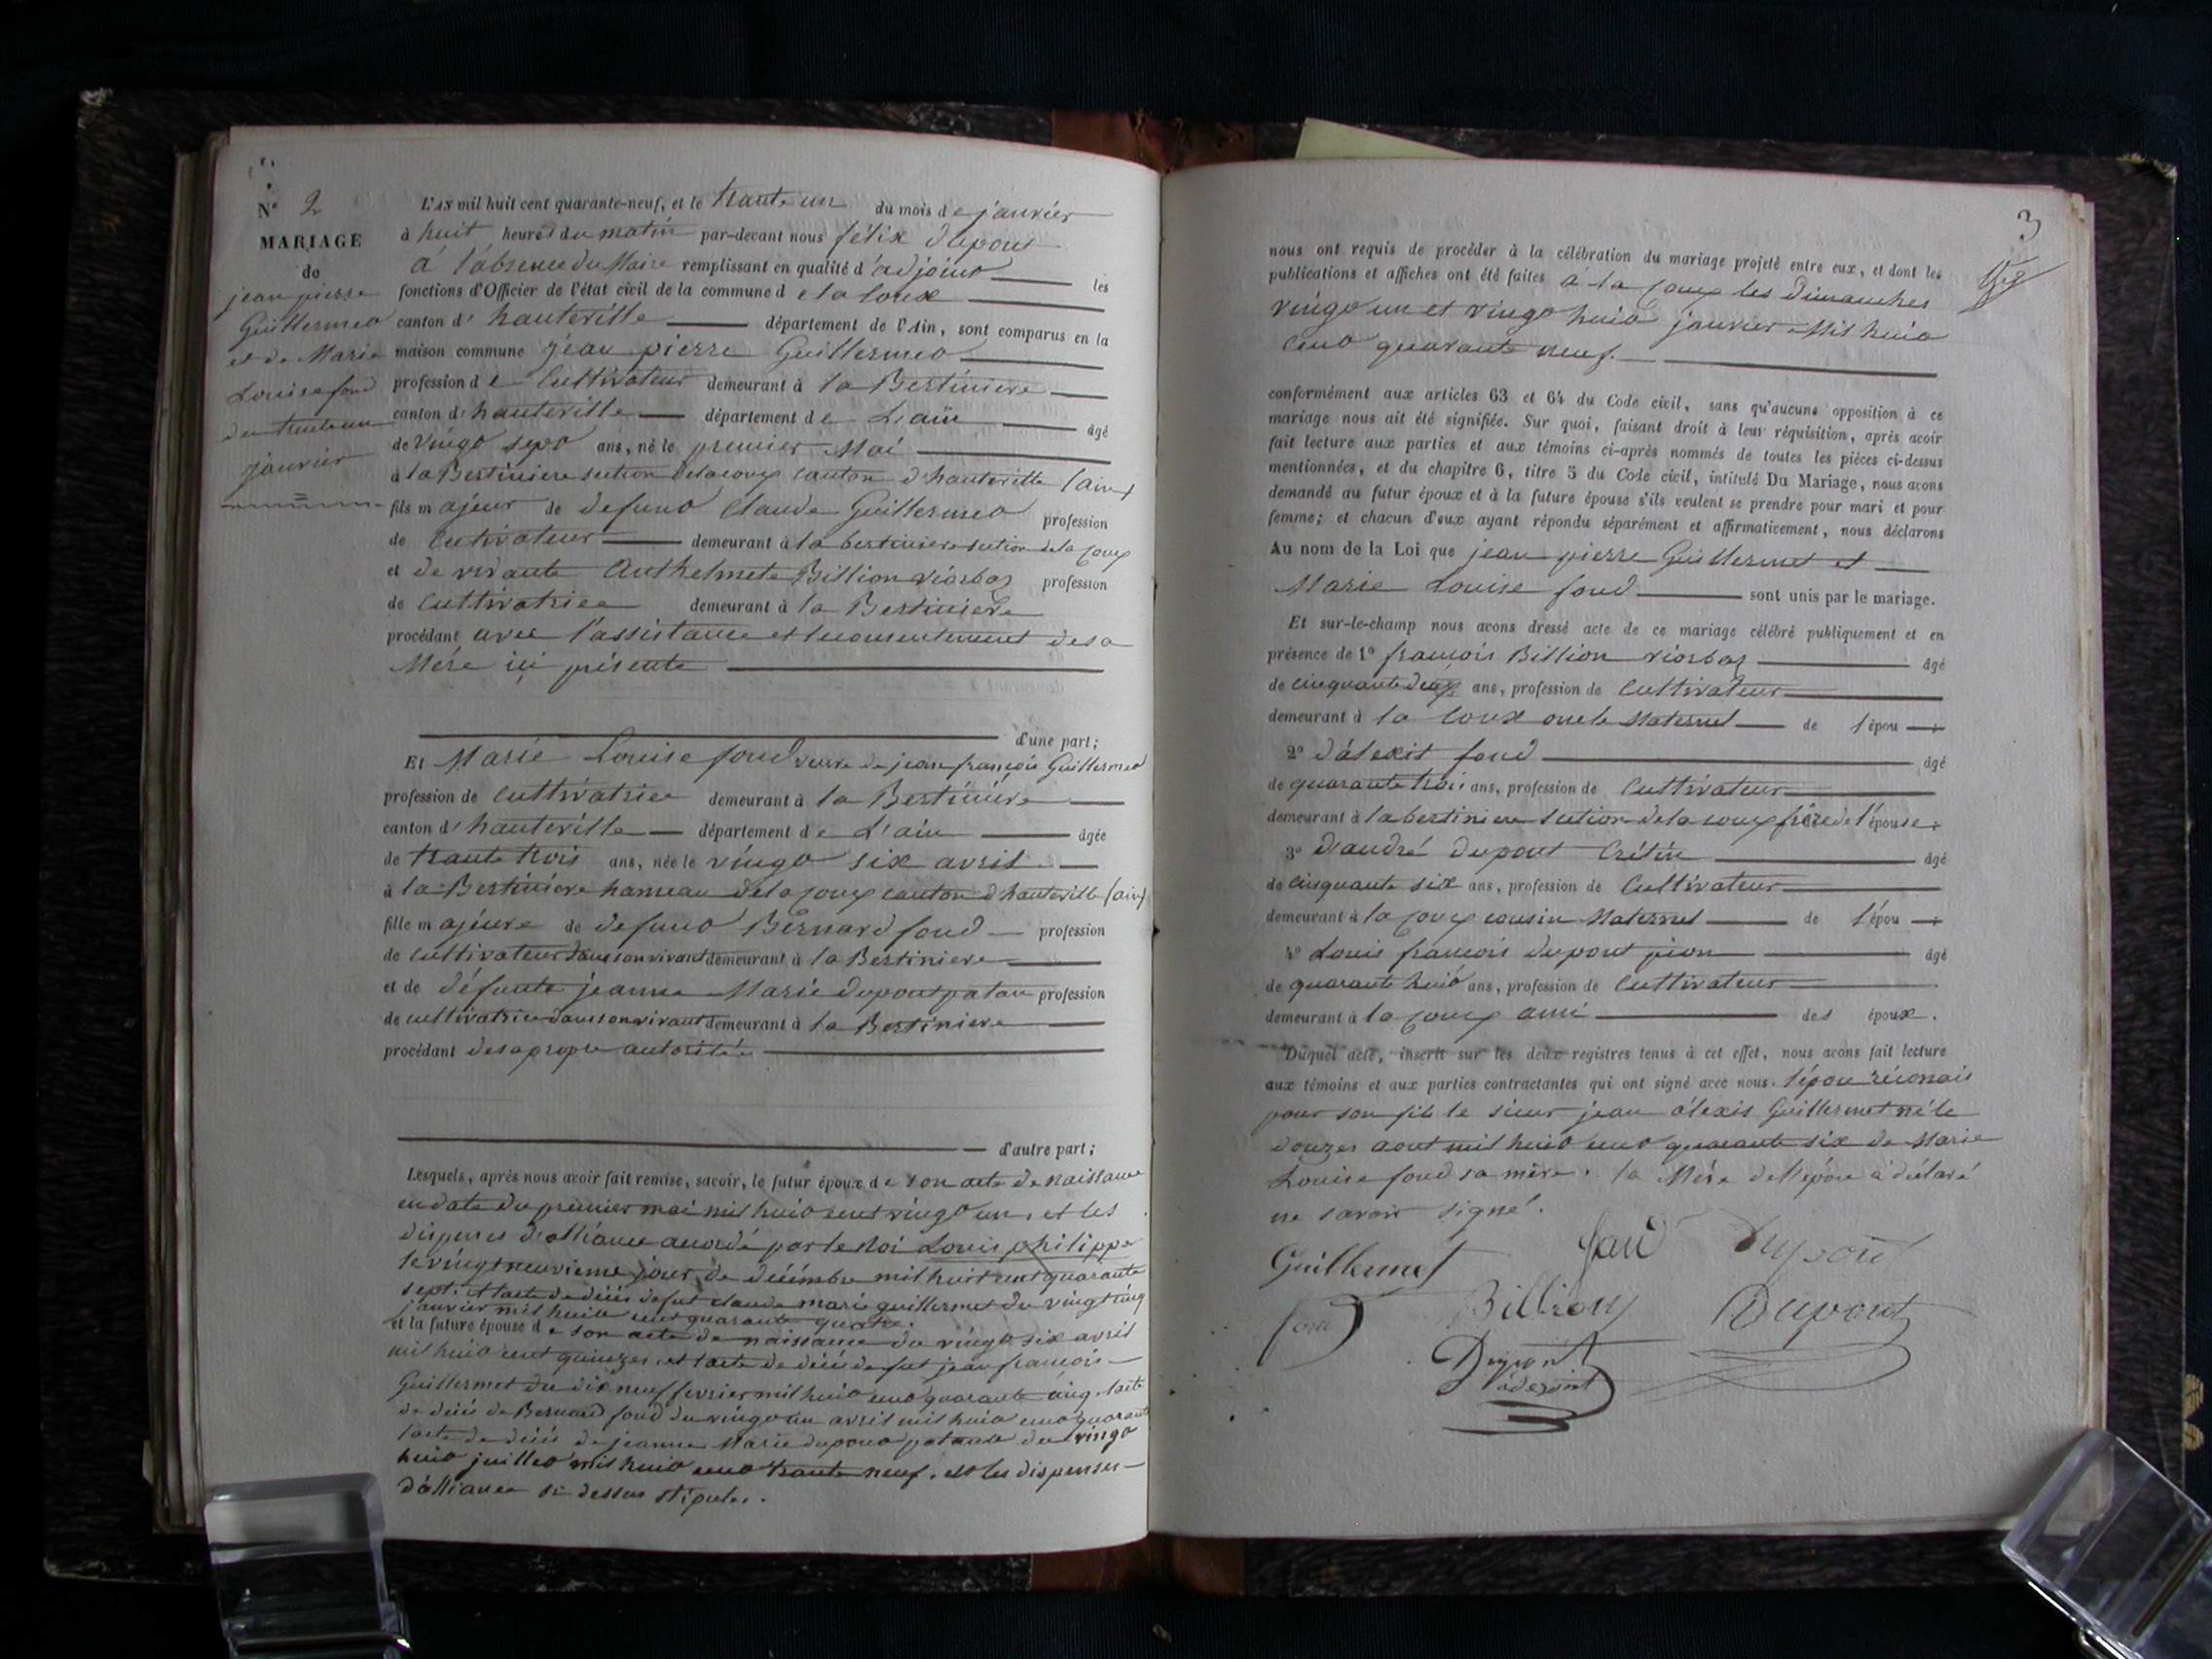 N° 2
MARIAGE
de
jean pierre
Guillermeo
et de Marie
Louise fond
du trente un
janvier
L'AN mil huit cent quarante-neuf, et le trante un du mois de janvier
à huit heures du matin par-devant nous félix dupont
à l'absence du Maire remplissant en qualité d'adjoino les
fonctions d'Officier de l'état civil de la commune de la loux
canton d'hauteville département de l'Ain, sont comparus en la
maison commune jean pierre Guillermeo
profession de Cultivateur demeurant à la Bertiniere
canton d'hauteville département de L'ain âgé
de vingo sepo ans, né le premier Mai
à la Bertiniere section de la coux canton d'hauteville (ain)
fils majeur de defuno Claude Guillermeo profession
de Cutivateur demeurant à la bertiniere section de la coux
et de vivante Anthelmete Billion profession
de Cultivatrice demeurant à la Bertiniere
procédant avec l'assistance et le consentement de sa
Mére ici présente
d'une part;
Et Marie Louise fond veuve de jean françois Guillermeo
profession de Cultivatrice demeurant à la Bertiniére
canton d'hauteville département de L'ain âgée
de trante trois ans, née le vingo six avril
à la Bertiniere hameau de la coux canton d'hauteville (ain)
fille majeure de defuno Bernard fond profession
de cultivateur dans son vivant demeurant à la Bertiniere
et de défunte jeanne Marie dupont patan profession
de cultivatrice dans son vivant demeurant à la Bertiniere
procédant de sa propre autorité
d'autre part;
Lesquels, après nous avoir fait remise, savoir, le futur époux de son acte de naissance
en date du premier mai mil huio cent vingo un, et les
dispenses d'alliance acordé par le Roi Louis philippe
le vingt neuvieme jour de décémbre mil huit cent quarante
sept. et l'acte de décés de fut claude marie guillermet du vingt cinq
janvier mil huio cent quarante quatre.
et la future épouse de son acte de naissance du vingo six avril
mil huio cent quinze, et l'acte de décés de fut jean françois
Guillermet du dix neuf fevrier mil huio ceno quarante cinq. l'acte
de décés de Bernard fond du vingo un avril mil huio ceno quarante
l'acte de décés de jeanne Marie dupono du vingo
huio juilleo mil huio ceno trante neuf. et les dispenses
d'alliance si dessus stipules.
3
nous ont requis de procéder à la célébration du mariage projeté entre eux, et dont les
publications et affiches ont été faites à la coux les dimanches
vingo un et vingo huio janvier Mil huio
ceno quarante neuf.
conformément aux articles 63 et 64 du Code civil, sans qu'aucune opposition à ce
mariage nous ait été signifiée. Sur quoi, faisant droit à leur réquisition, après avoir
fait lecture aux parties et aux témoins ci-après nommés de toutes les pièces ci-dessus
mentionnées, et du chapitre 6, titre 5 du Code civil, intitulé Du Mariage, nous avons
demandé au futur époux et à la future épouse s'ils veulent se prendre pour mari et pour
femme; et chacun d'eux ayant répondu séparément et affirmativement, nous déclarons
Au nom de la Loi que jean pierre Guillermet et
Marie Louise fond sont unis par le mariage.
Et sur-le-champ nous avons dressé acte de ce mariage célébré publiquement et en
présence de 1° françois Billion âgé
de cinquante deux ans, profession de Cultivateur
demeurant à la loux oncle Maternel de l'épou
2° d'álexit fond âgé
de quarante trois ans, profession de Cultivateur
demeurant à la bertiniere section de la coux frére de l'épouse
3° d'andré dupont Crétin âgé
de cinquante six ans, profession de Cultivateur
demeurant à la coux cousin Maternel de l'épou
4° Louis françois dupont pion âgé
de quarante huio ans, profession de Cultivateur
demeurant à la coux ami des époux.
Duquel acte, inscrit sur les deux registres tenus à cet effet, nous avons fait lecture
aux témoins et aux parties contractantes qui ont signé avec nous. l'épou réconais
pour son fils le sieur jean álexis Guillermet né le
douze aout mil huio ceno quarante six de Marie
Louise fond sa mére. la Mére de l'épou à déclaré
ne savoir signé.
Guillermet
Billion Dupont
Dupont